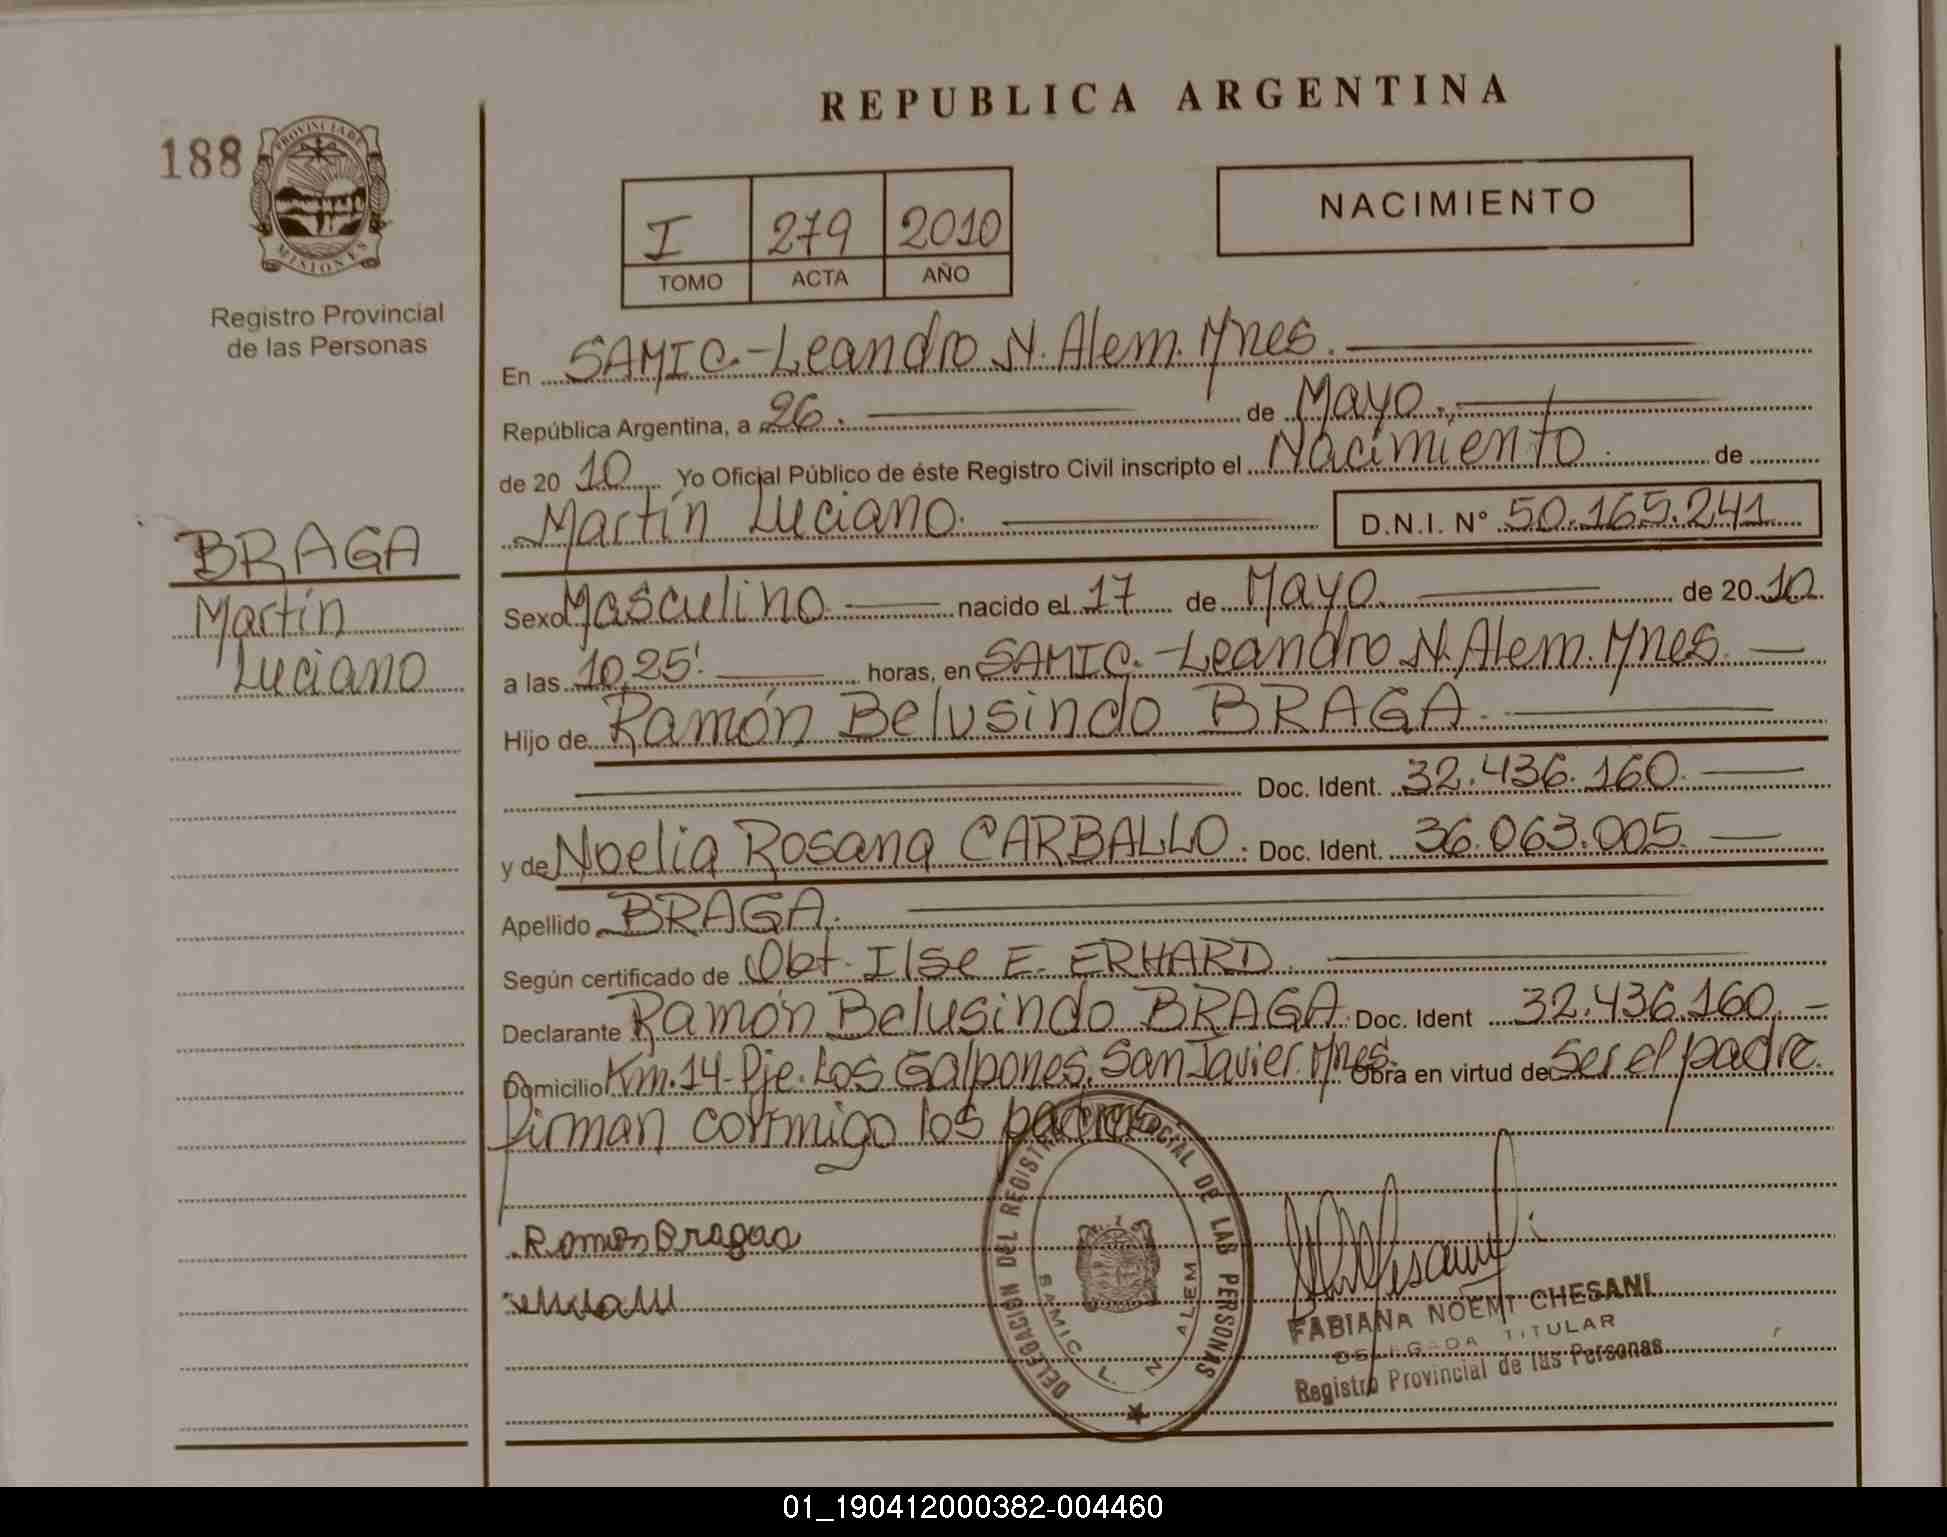 REPUBLICA ARGENTINA
188
PROVINCIA DE
MISIONES
Registro Provincial
de las Personas
NACIMIENTO
I 279 2010
TOMO ACTA AÑO
En SAMIC.-Leandro N. Alem. Mnes.
República Argentina, a 26. de Mayo.
de 20 10 Yo Oficial Público de éste Registro Civil inscripto el Nacimiento. de
Martín Luciano. D.N.I. Nº 50.165.241
BRAGA
Martín
Luciano
Sexo Masculino nacido el 17 de Mayo. de 20 10
a las 10,25'. horas, en SAMIC.-Leandro N. Alem. Mnes.
Hijo de Ramón Belusindo BRAGA.
Doc. Ident. 32.436.160.
y de Noelia Rosana CARBALLO. Doc. Ident. 36.063.005.
Apellido BRAGA.
Según certificado de Obt. Ilse E. ERHARD.
Declarante Ramón Belusindo BRAGA. Doc. Ident 32.436.160.-
Domicilio Km.14-Pje. Los Galpones. San Javier. Mnes. Obra en virtud de Ser el padre.
firman conmigo los padres
DELEGACION DEL REGISTRO DE LAS PERSONAS
SAMIC L. N. ALEM
FABIANA NOEMI CHESANI
DELEGADA TITULAR
Registro Provincial de las Personas
01_190412000382-004460